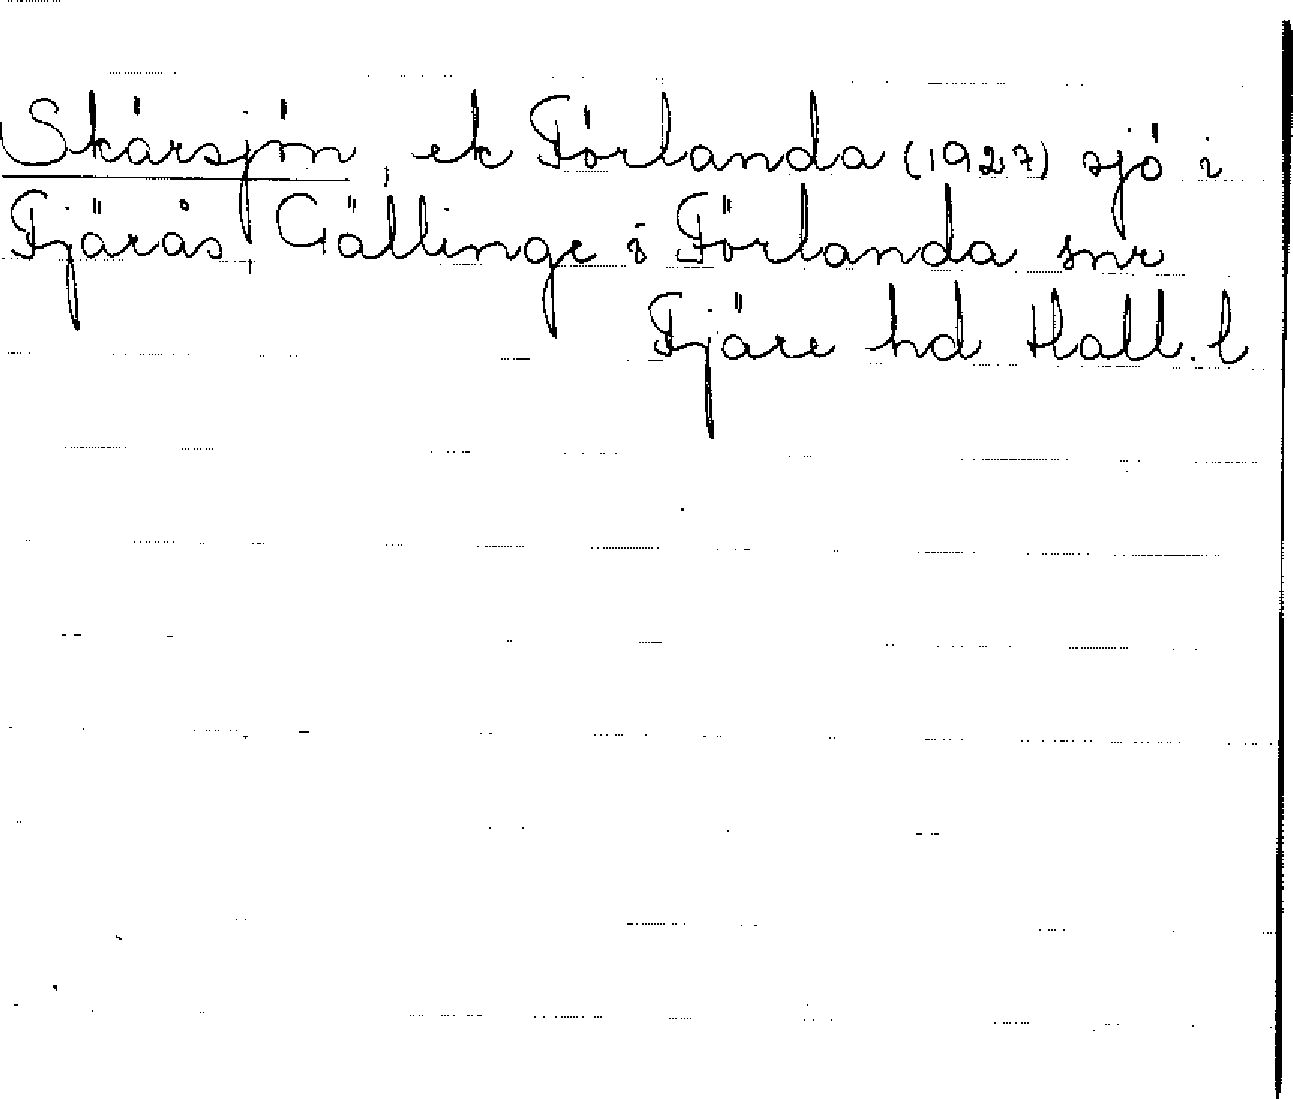 Skärsjön, ek Förlanda (1927) sjö i
Fjärås, Gällinge i Förlanda snr
Fjäre hd Hall. l